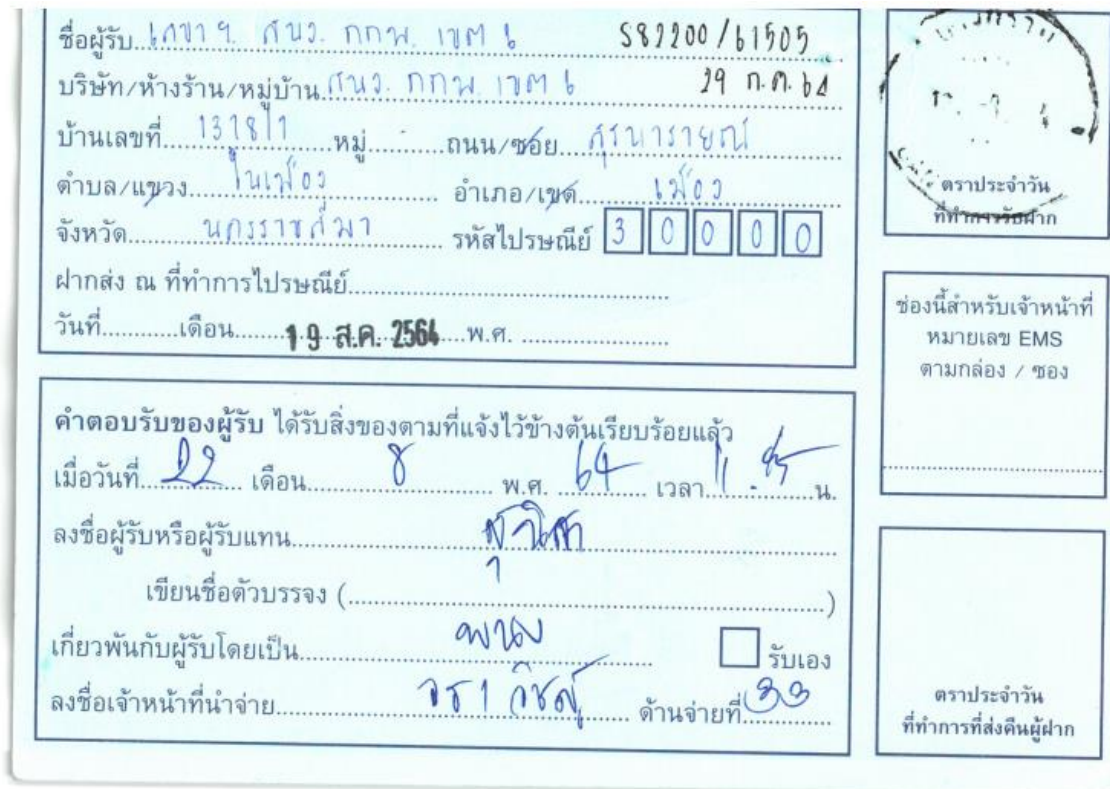 ชื่อผู้รับ เลขาฯ สนง. กกพ. เขต 6 S82200/61505
บริษัท/ห้างร้าน/หมู่บ้าน สนง. กกพ. เขต 6 29 ก.ค. 64
บ้านเลขที่ 1318/1 หมู่ ถนน/ซอย สุรนารายณ์
ตำบล/แขวง ในเมือง อำเภอ/เขต เมือง
จังหวัด นครราชสีมา รหัสไปรษณีย์ 30000
ฝากส่ง ณ ที่ทำการไปรษณีย์
วันที่ เดือน 19 ส.ค. 2564 พ.ศ.
คำตอบรับของผู้รับ ได้รับสิ่งของตามที่แจ้งไว้ข้างต้นเรียบร้อยแล้ว
เมื่อวันที่ 22 เดือน 8 พ.ศ. 64 เวลา น.
ลงชื่อผู้รับหรือผู้รับแทน
เขียนชื่อตัวบรรจง ( )
เกี่ยวพันกับผู้รับโดยเป็น รับเอง
ลงชื่อเจ้าหน้าที่นำจ่าย ด้านจ่ายที่ 33
ตราประจำวัน
ที่ทำการรับฝาก
ช่องนี้สำหรับเจ้าหน้าที่
หมายเลข EMS
ตามกล่อง / ซอง
ตราประจำวัน
ที่ทำการที่ส่งคืนผู้ฝาก